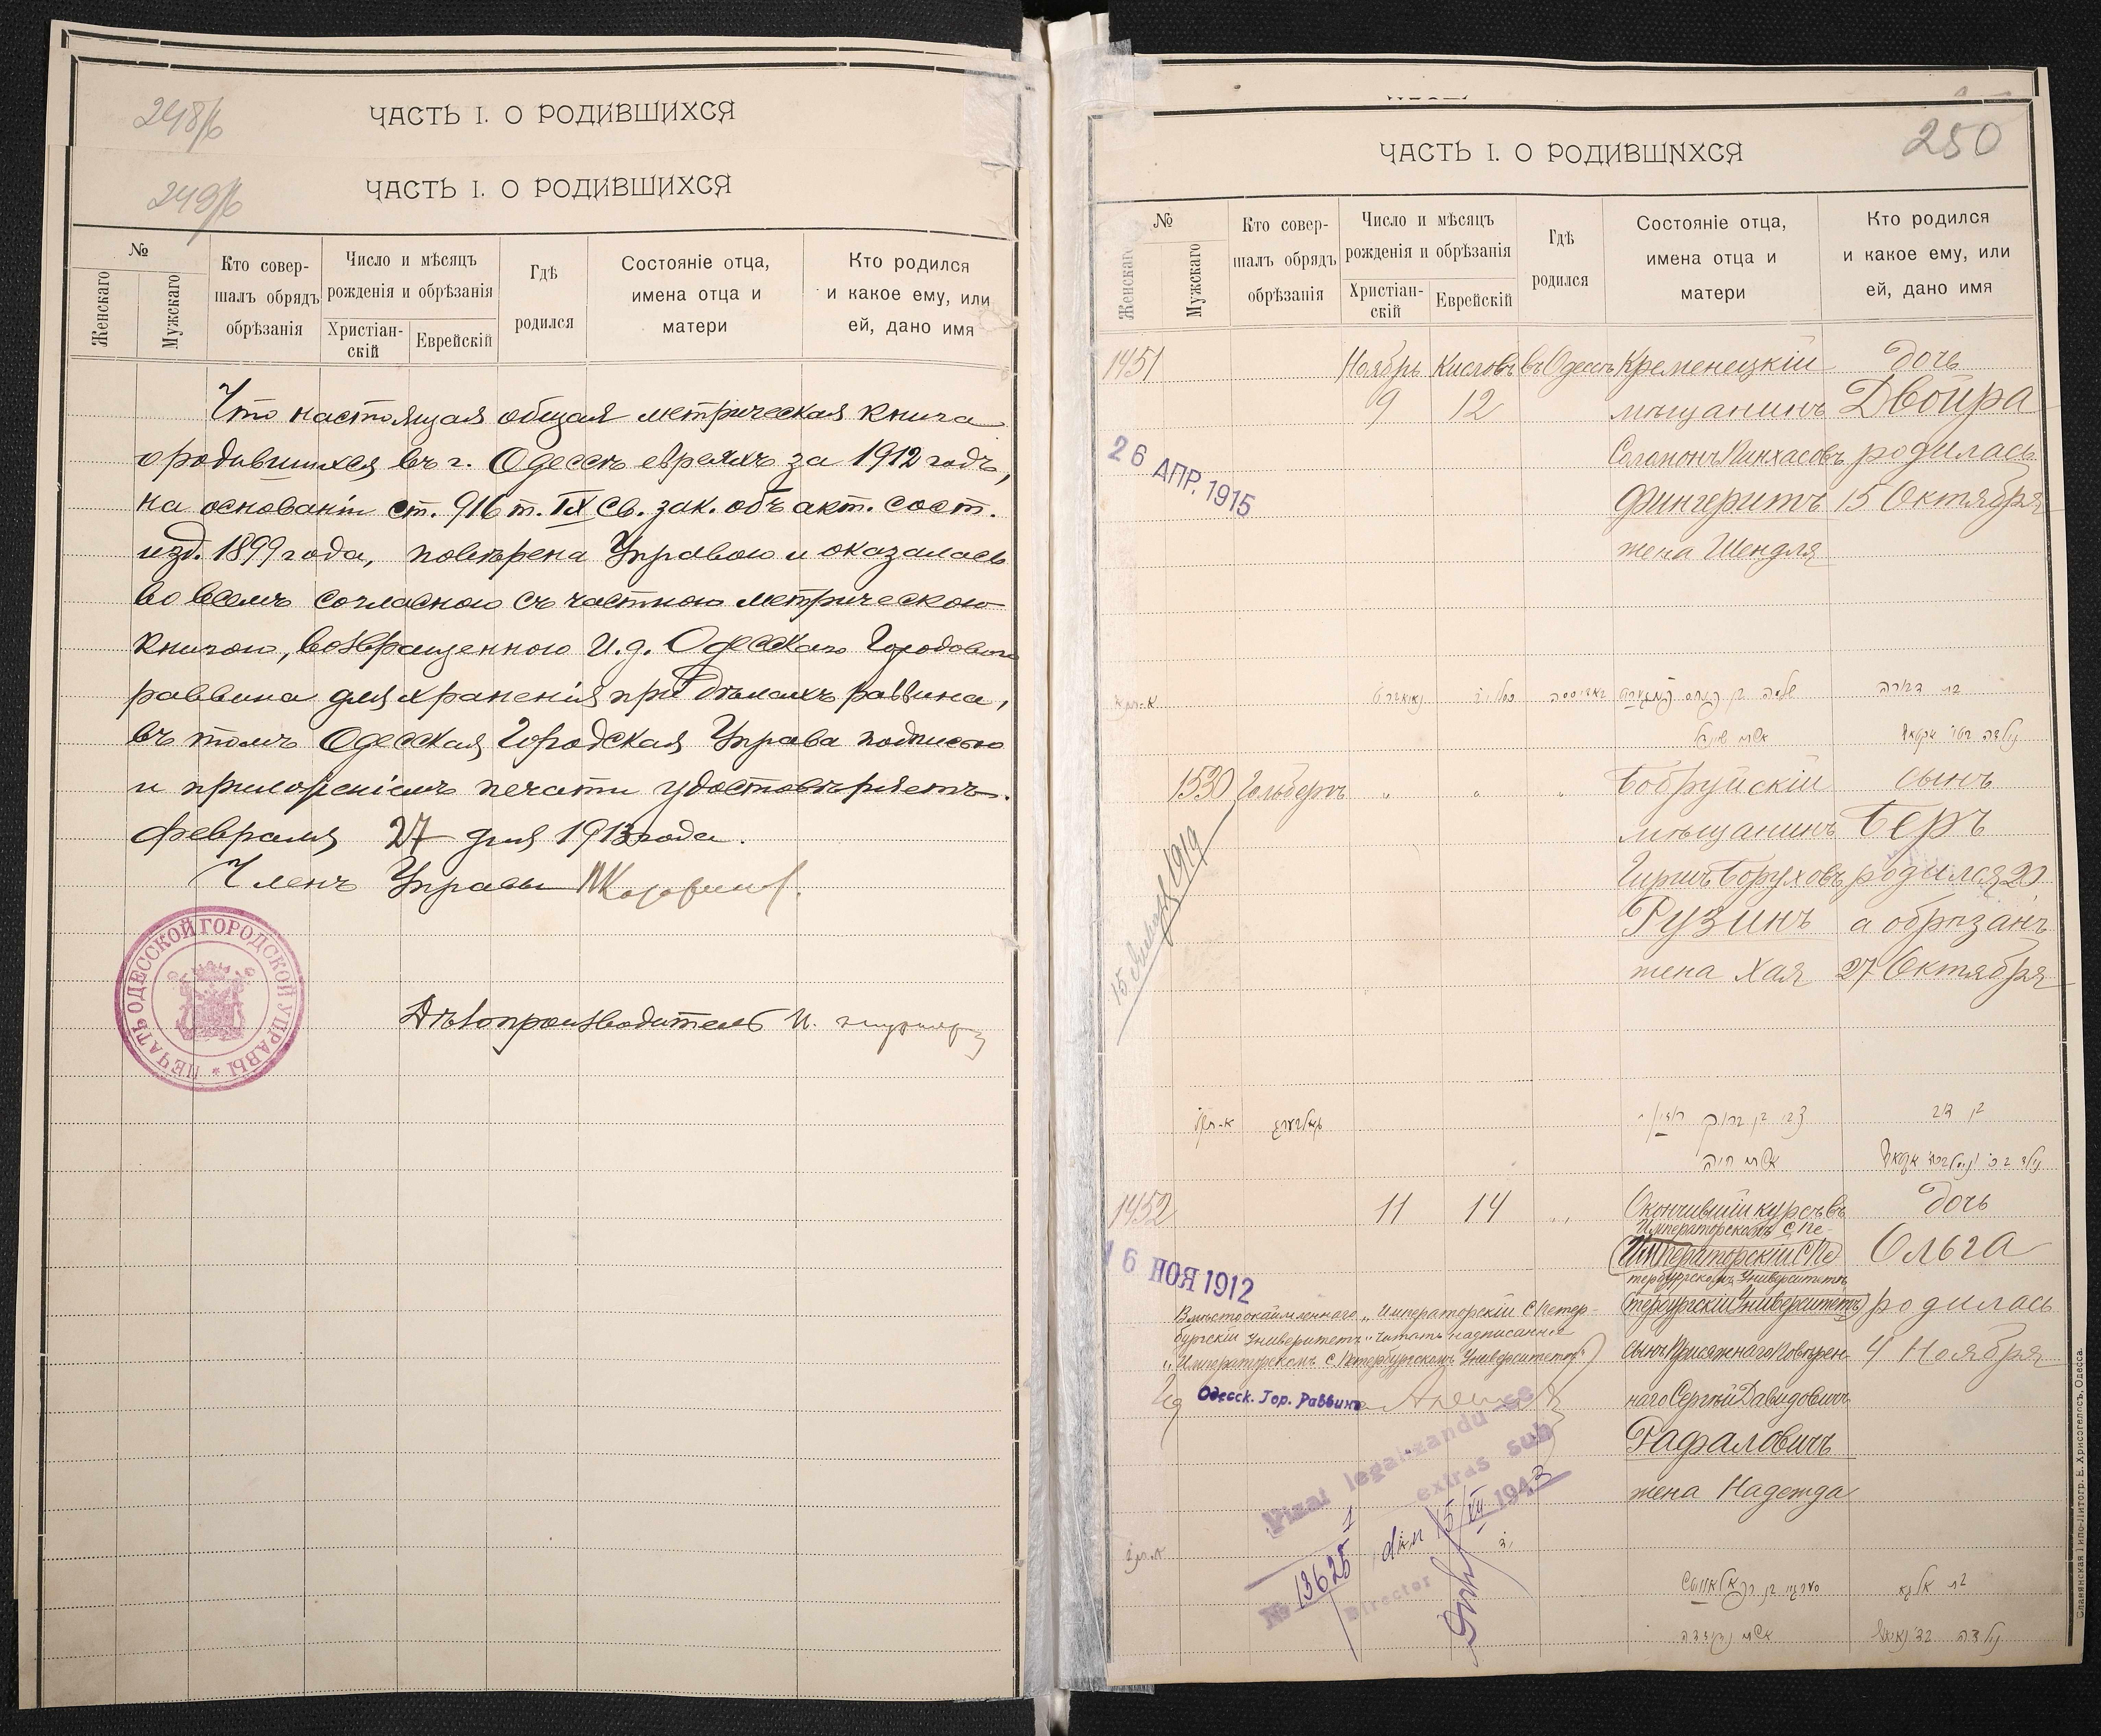 248/б
ЧАСТЬ I. О РОДИВШИХСЯ
249/б
ЧАСТЬ I. О РОДИВШИХСЯ
№
Женскаго
Мужскаго
Кто совер-
шалъ обрядъ
обрѣзанія
Число и мѣсяцъ
рожденія и обрѣзанія
Христіан-
скій
Еврейскій
Гдѣ
родился
Состояніе отца,
имена отца и
матери
Кто родился
и какое ему, или
ей, дано имя
Что настоящая общая метрическая книга
о родившихся въ г. Одессѣ евреяхъ за 1912 годъ,
на основаніи ст. 916 т. IX св. зак. объ акт. сост.
изд. 1899 года, повѣрена Управою и оказалась
во всемъ согласною съ частною метрическою
книгою, возвращенною И.д. Одесскаго Городового
раввина для храненія при дѣлахъ раввина,
въ томъ Одесская Городская Управа подписью
и приложеніемъ печати удостовѣряетъ.
Февраля 27 дня 1913 года.
Членъ Управы
ПЕЧАТЬ ОДЕССКОЙ ГОРОДСКОЙ УПРАВЫ
Дѣлопроизводитель И.
250
ЧАСТЬ I. О РОДИВШИХСЯ
№
Женскаго
Мужскаго
Кто совер-
шалъ обрядъ
обрѣзанія
Число и мѣсяцъ
рожденія и обрѣзанія
Христіан-
скій
Еврейскій
Гдѣ
родился
Состояніе отца,
имена отца и
матери
Кто родился
и какое ему, или
ей, дано имя
1451 Ноябрь Кислевъ въ Одессѣ Кременецкій дочь
9 12 мѣщанинъ Двойра
Соломонъ Пинхасовъ родилась
Фингеритъ 15 Октября
жена Шендля
26 АПР. 1915
בת דבורה
אשתו שיינדל
1530 Гольбергъ " " " Бобруйскій сынъ
мѣщанинъ Беръ
Гиршъ Боруховъ родился 20
Рузинъ а обрѣзанъ
жена Хая 27 Октября
1919
צבי בן ברוך רוזין בן דב
אשתו חיה
1452 11 14 " Окончившій курсъ въ дочь
Императорскомъ С Пе-
Императорскій С Пе Ольга
тербургскомъ Университетѣ
тербургскій Университетъ родилась
сынъ Присяжнаго Повѣрен- 4 Ноября
наго Сергѣй Давидовичъ
Рафаловичъ
жена Надежда
16 НОЯ 1912
Вмѣсто окаймленнаго „Императорскій С Петер-
бургскій Университетъ" читать надписанное
„Императорскомъ С Петербургскомъ Университетѣ"
Ид Одесск. Гор. Раввинъ
Vizat legalizandu-se
extras sub
№ 13625 din 15/VII 1943
Director
בת אלגא
אשתו נאדעזדה
Славянская Типо-Литогр. Е. Хрисогелосъ, Одесса.